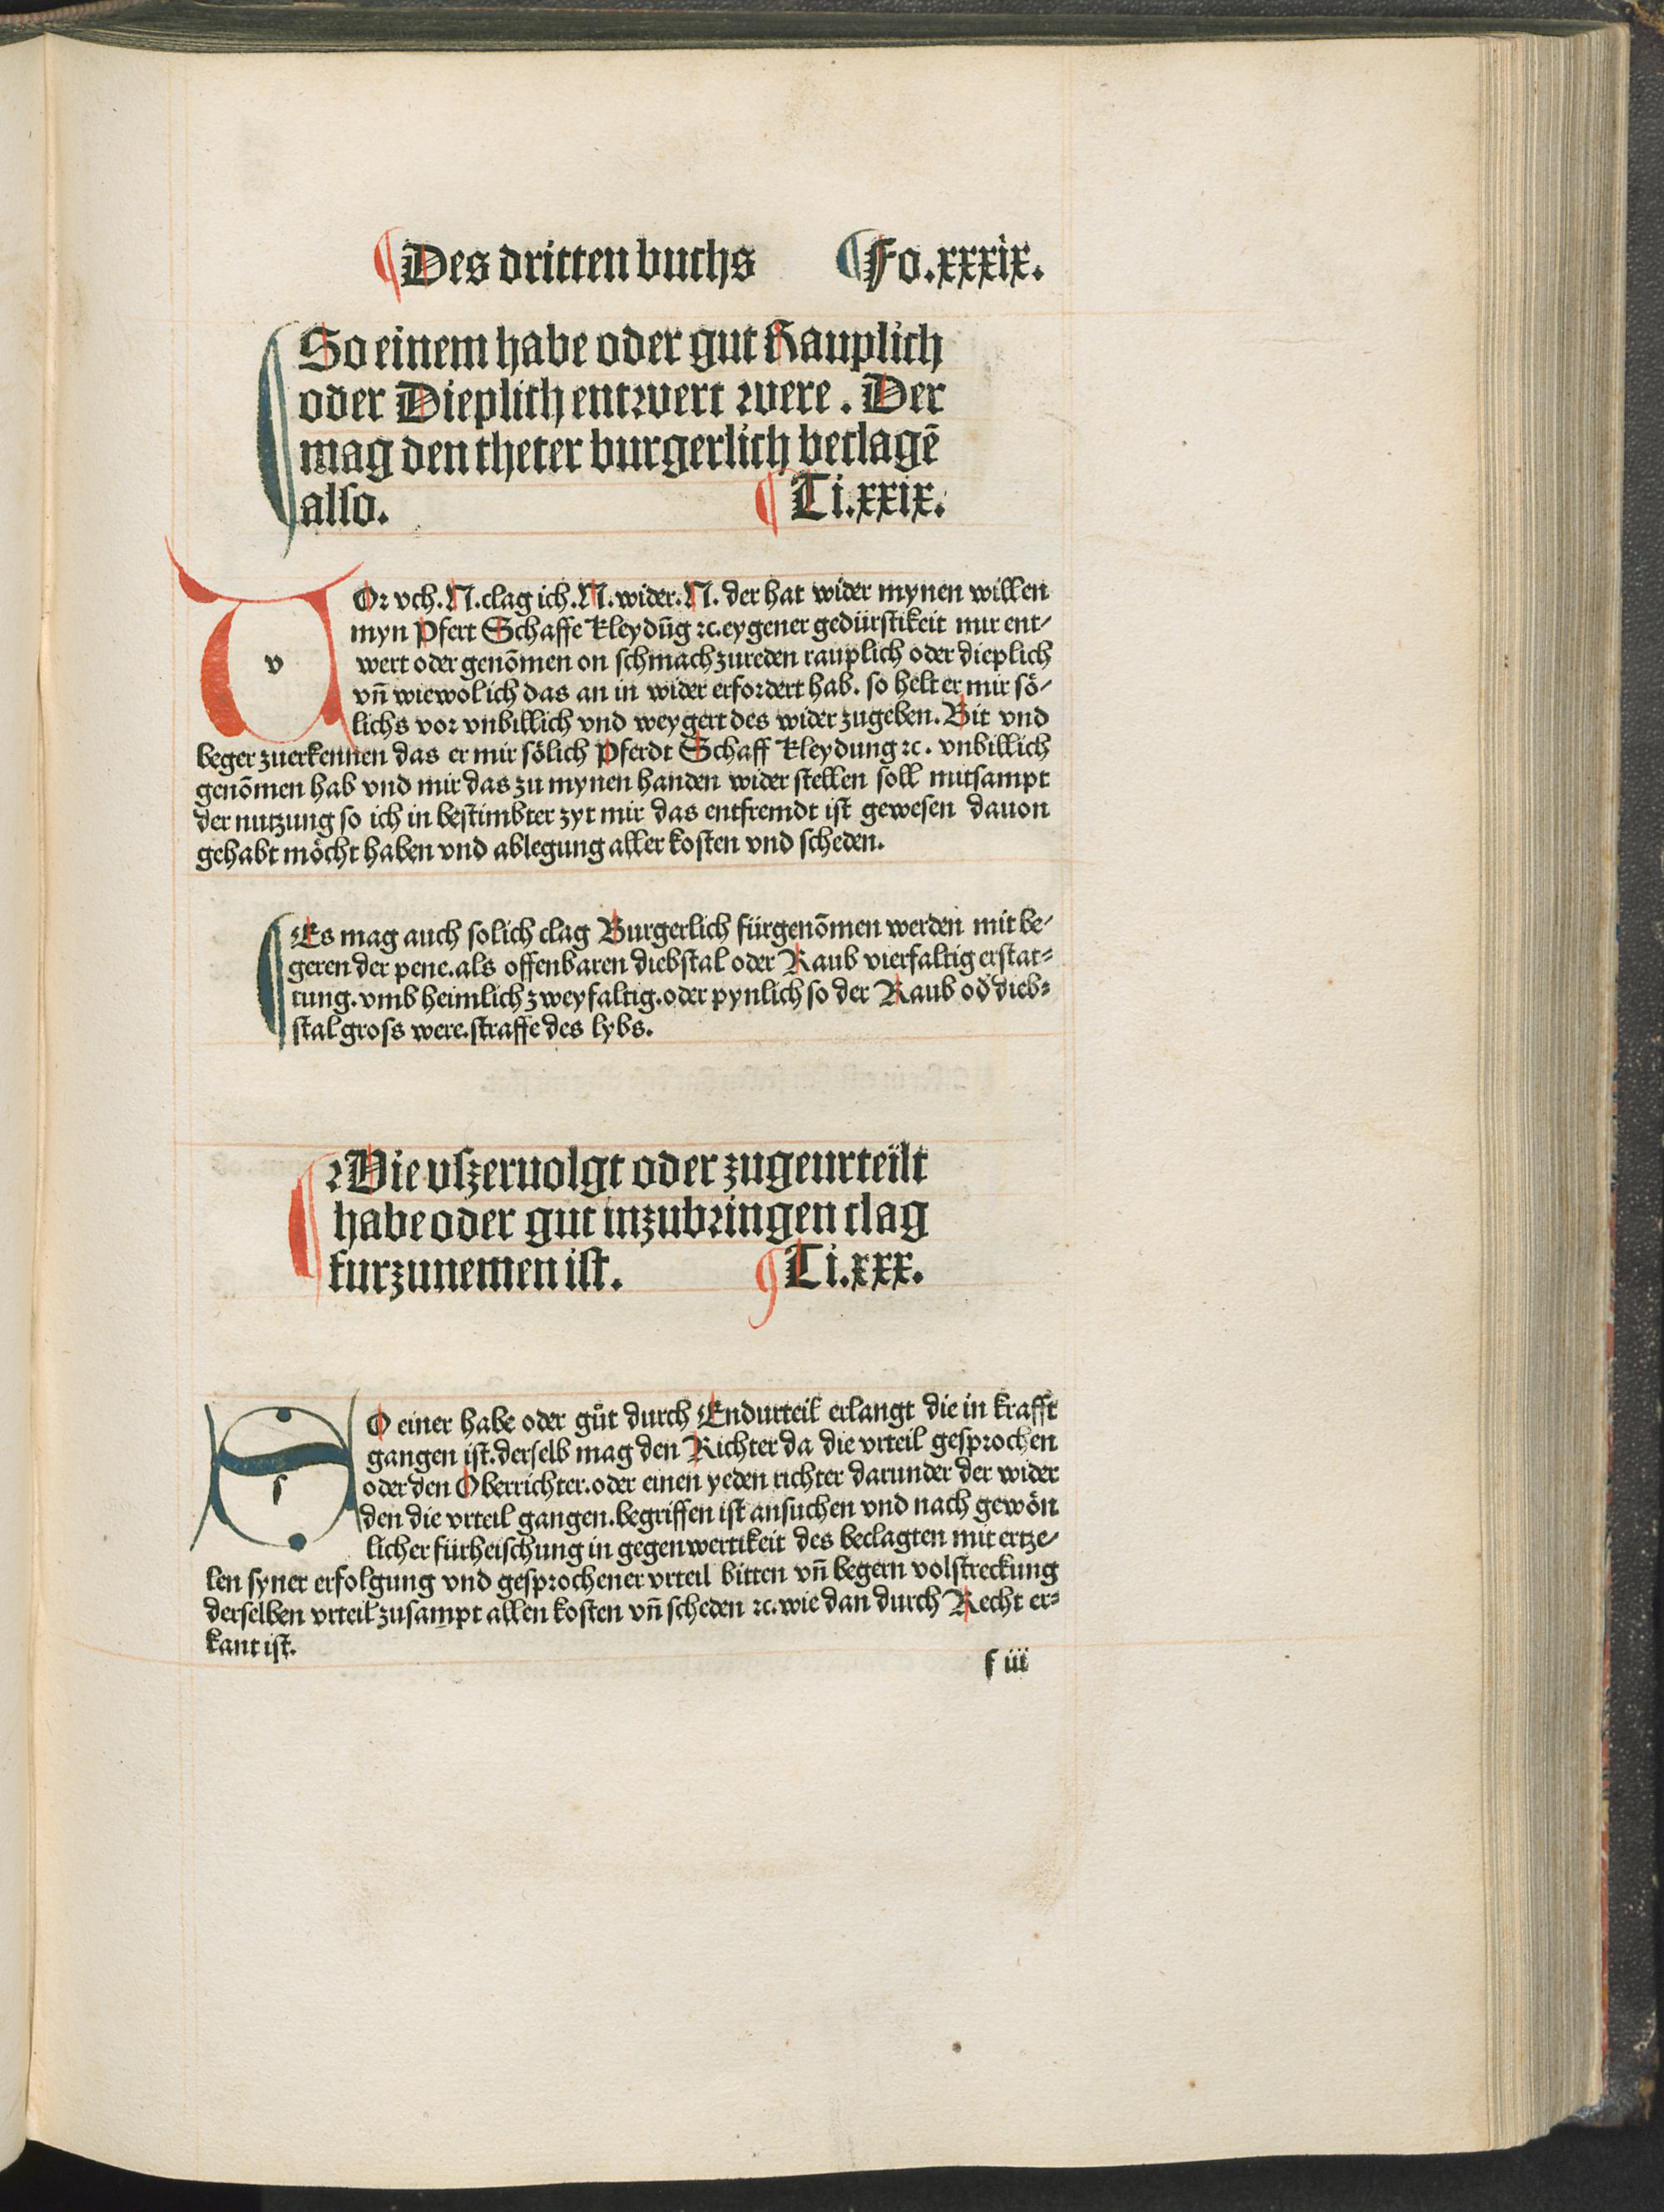 Des dritten buchs Fo.xxxix.
So einem habe oder gut Rauplich
oder Dieplich entwert were. Der
mag den theter burgerlich beclagē
also. Ti.xxix.
VOr vch. N. clag ich. N. wider. N. der hat wider mynen willen
myn Pfert Schaffe kleydūg ꝛc. eygener gedürstikeit mir ent-
wert oder genōmen on schmach zureden rauplich oder dieplich
vn̄ wiewol ich das an in wider erfordert hab. so helt er mir sö-
lichs vor vnbillich vnd weygert des wider zugeben. Bit vnd
beger zuerkennen das er mir sölich Pferdt Schaff kleydung ꝛc. vnbillich
genōmen hab vnd mir das zu mynen handen wider stellen soll mitsampt
der nutzung so ich in bestimbter zyt mir das entfremdt ist gewesen dauon
gehabt möcht haben vnd ablegung aller kosten vnd scheden.
Es mag auch solich clag Burgerlich fürgenōmen werden mit be-
geren der pene. als offenbaren diebstal oder Raub vierfaltig erstat-
tung. vmb heimlich zweyfaltig. oder pynlich so der Raub od̄ dieb-
stal gross were. straffe des lybs.
Wie vszeruolgt oder zugeurteilt
habe oder gut inzubringen clag
furzunemen ist. Ti.xxx.
SO einer habe oder gůt durch Endurteil erlangt die in krafft
gangen ist. derselb mag den Richter da die vrteil gesprochen
oder den Oberrichter. oder einen yeden richter darunder der wider
den die vrteil gangen. begriffen ist ansuchen vnd nach gewön
licher fürheischung in gegenwertikeit des beclagten mit ertze-
len syner erfolgung vnd gesprochener vrteil bitten vn̄ begern volstreckung
derselben vrteil zusampt allen kosten vn̄ scheden ꝛc. wie dan durch Recht er-
kant ist.
f iii